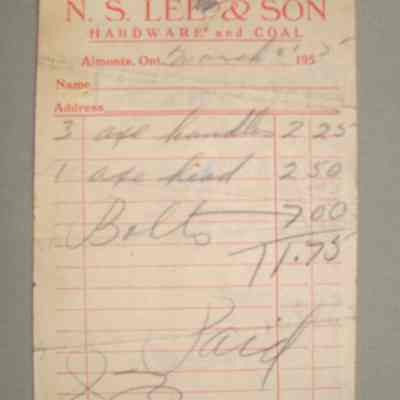 N. S. LEE & SON
HARDWARE and COAL
Almonte, Ont. March 195
Name
Address
3 axe handles 2 25
1 axe head 2 50
Bolts 7 00
11.75
Paid